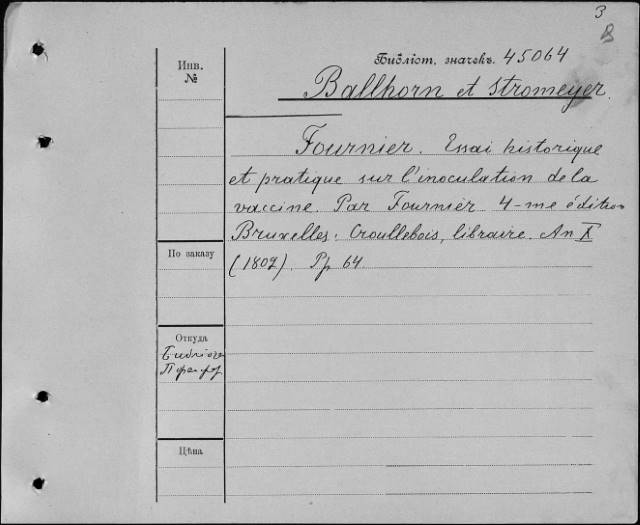 3
В
Библіот. значекъ. 45064
Ballhorn et Stromeyer.
Инв.
№
Fournier. Essai historique
et pratique sur l'inoculation de la
vaccine. Par Fournier 4-me édition
Bruxelles. Croullebois, libraire. An X
(1802). Pp. 64
По заказу
Откуда
Цѣна